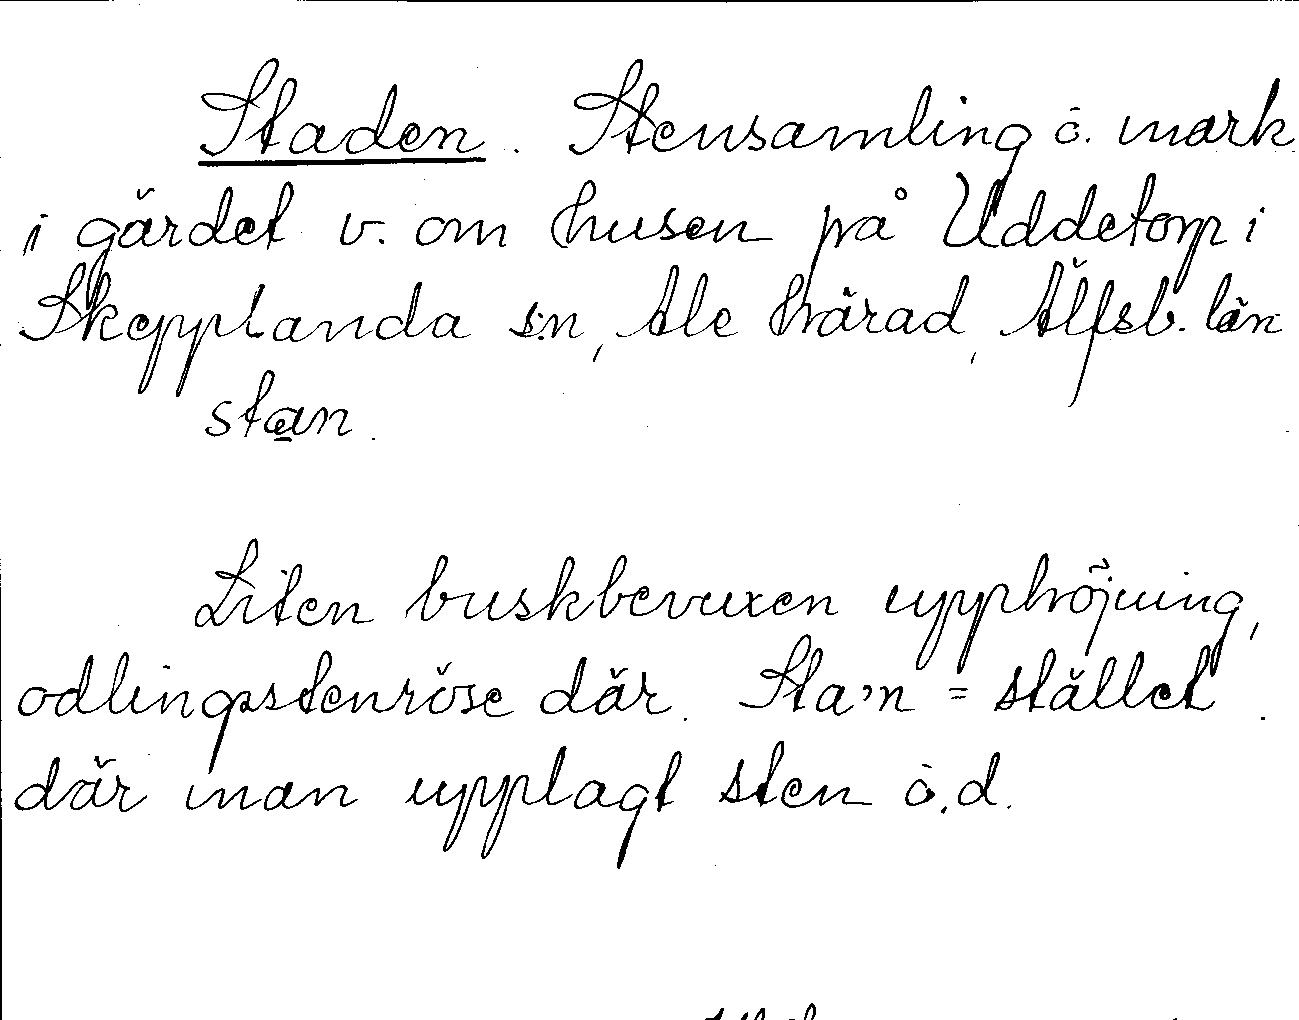 Staden. Stensamling o. mark
i gärdet v. om husen på Uddetorp i
Skepplanda sn, Ale härad, Älfsb. län
stan.
Liten buskbevuxen upphöjning,
odlingsstenröse där. Sta'n = stället
där man upplagt sten o.d.